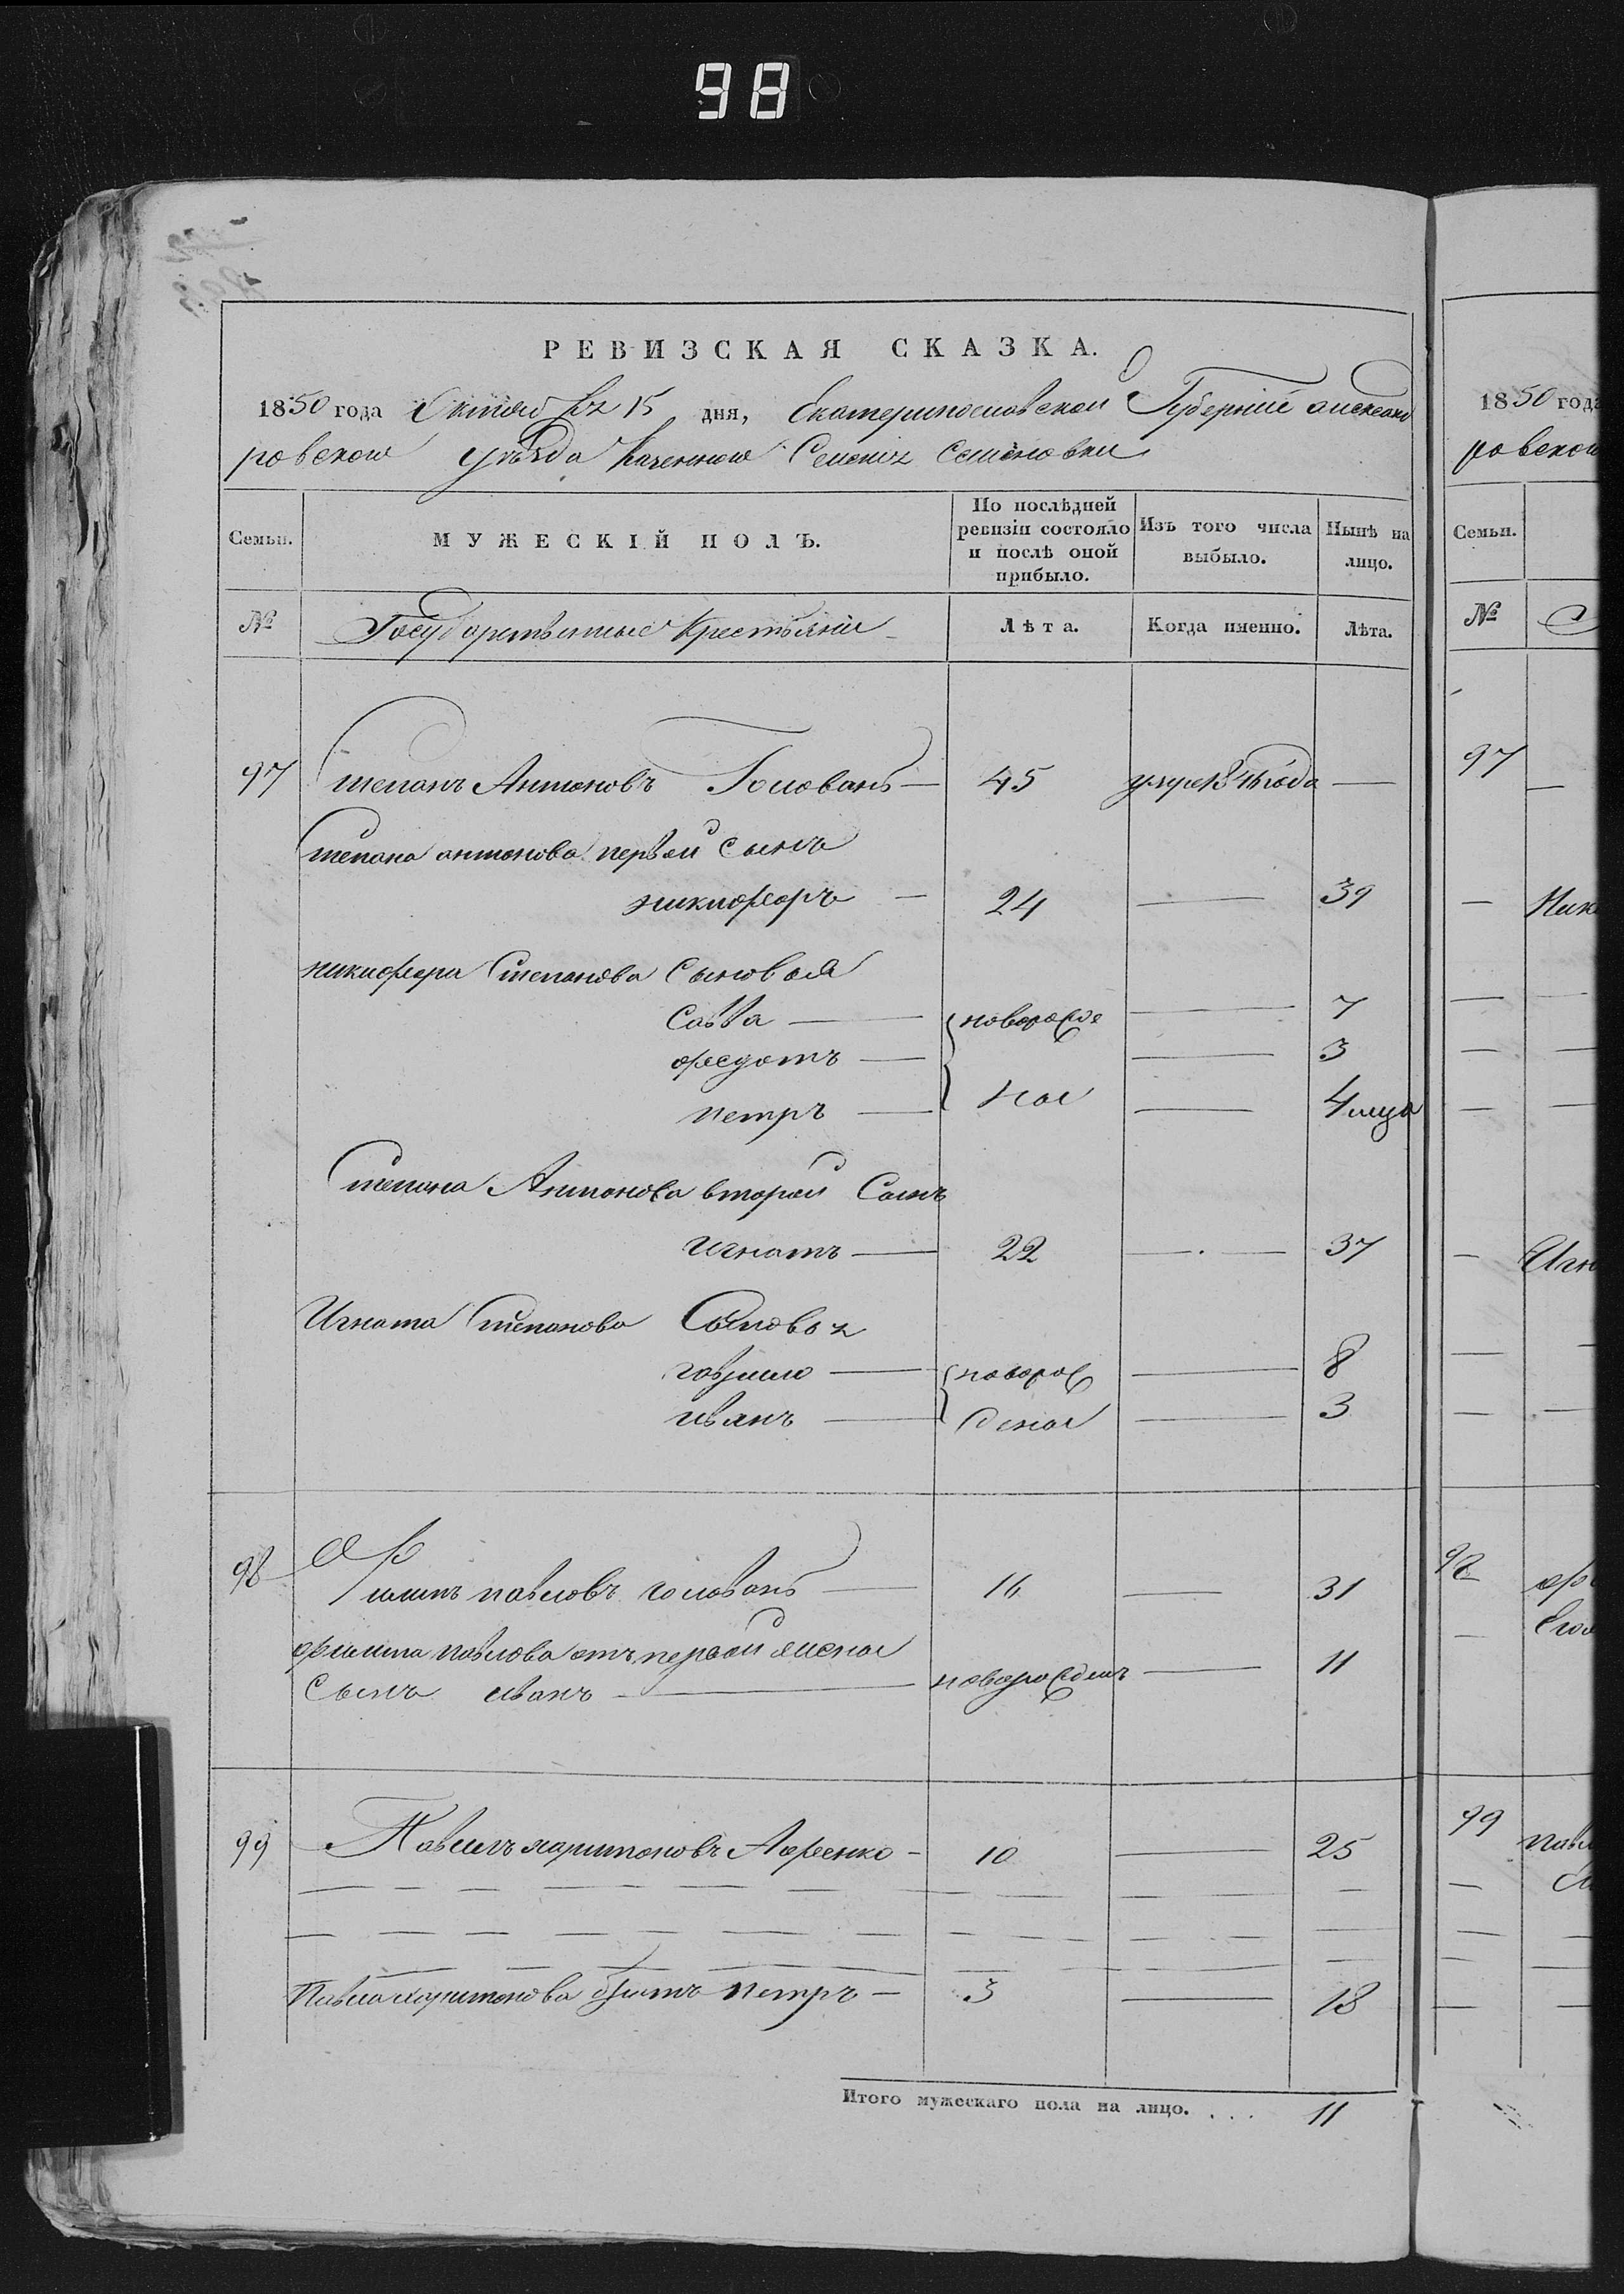 98
РЕВИЗСКАЯ СКАЗКА.
1850 года Октяб ря 15 дня, Екатеринославской Губерніи александ
ровскою уѣзда Казенною Селенія Семеновки
Семьи.
МУЖЕСКІЙ ПОЛЪ.
По послѣдней ревизіи состояло и послѣ оной прибыло.
Изъ того числа выбыло.
Нынѣ на лицо.
№
Государственные Крестьяніи
Лѣта.
Когда именно.
Лѣта.
97 Степанъ Антоновъ Головань — 45 года —
Степана антонова первой сынъ
никифоръ — 24 — 39
никифора Степанова Сыновья
Савва — новорожде — 7
федотъ — — 3
петръ — ное — 4 меца
Степана Антонова второй Сынъ
Игнатъ — 22 — 37
Игната Степанова Сыновья
гаврило — оворож — 8
иванъ — деное — 3
98 Филипъ павловъ головань — 16 — 31
филипа павлова отъ первой жены
Сынъ иванъ — новорожденъ — 11
99 Павелъ харитоновъ Ляфенко — 10 — 25
Павла харитонова братъ петръ — 3 — 18
Итого мужескаго пола на лицо. . . . 11
1850 года
ровскою
Семьи.
№
97
—
— Ник
— Игн
98
99